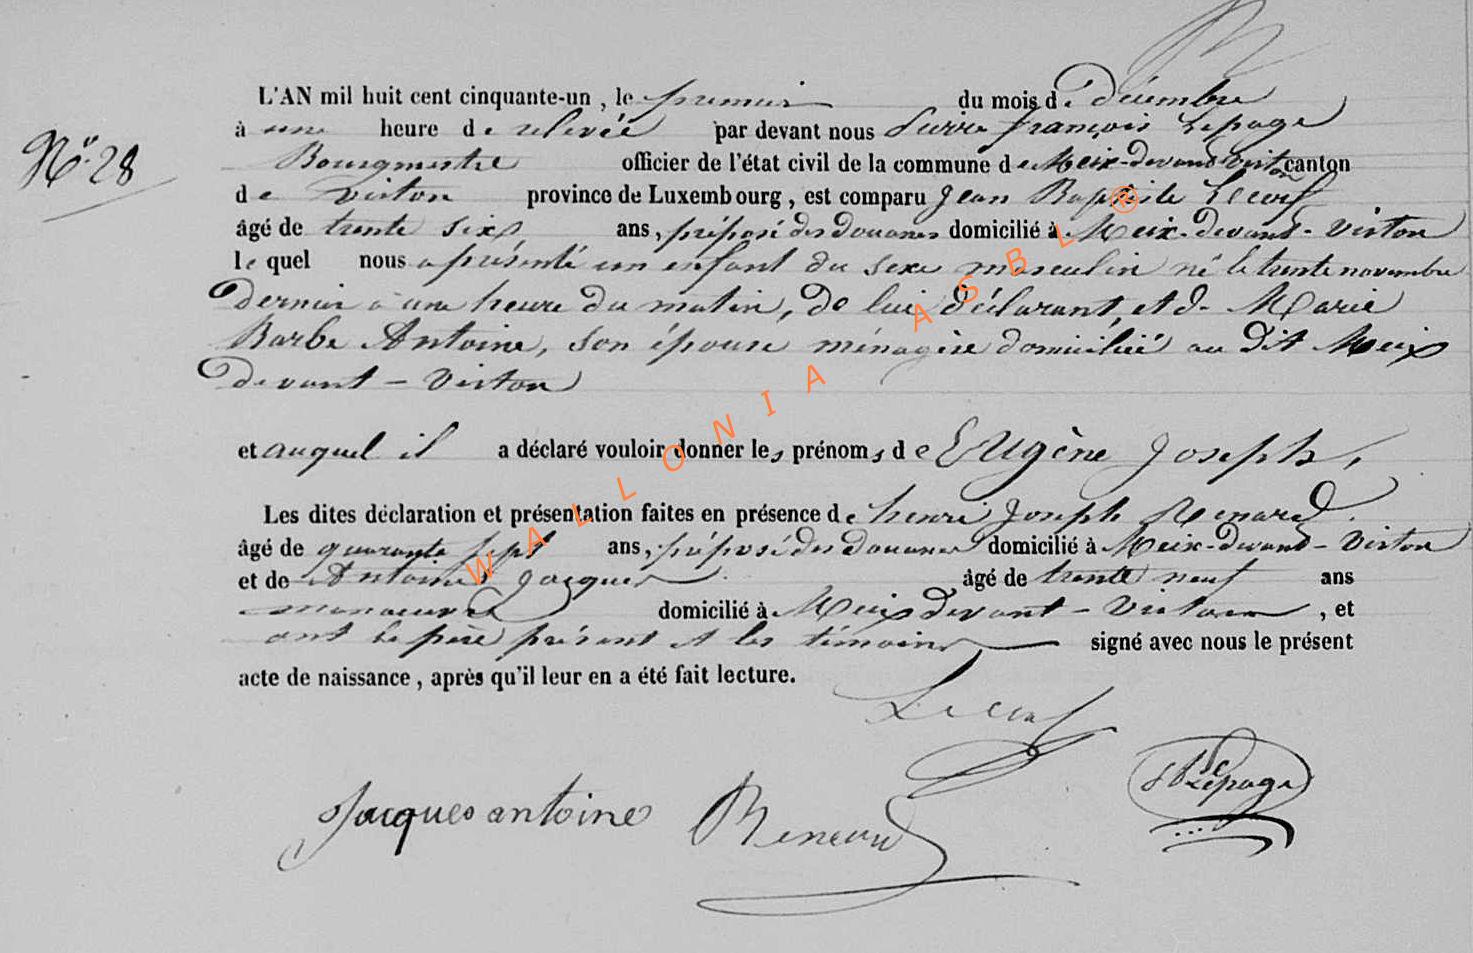 L'AN mil huit cent cinquante-un, le premier du mois de décembre
à une heure de relevée par devant nous Pierre françois Lepage
Bourgmestre officier de l'état civil de la commune de Meix-devant-virton canton
de Virton province de Luxembourg, est comparu Jean Baptiste Lecuf
N° 28
âgé de trente six ans, préposé des douanes domicilié à Meix-devant-Virton
le quel nous a présenté un enfant du sexe masculin né le trente novembre
dernier à une heure du matin, de lui déclarant, et de Marie
Barbe Antoine, son épouse ménagère domiciliée au dit Meix
devant-Virton
et auquel il a déclaré vouloir donner les prénoms de EUgène Joseph,
Les dites déclaration et présentation faites en présence de henri Joseph Renard
âgé de quarante sept ans, préposé des douanes domicilié à Meix-devant-Virton
et de Antoine Jacques âgé de trente neuf ans
manoeuvre domicilié à Meix devant-Virton, et
ont le père présent et les témoins, signé avec nous le présent
acte de naissance, après qu'il leur en a été fait lecture.
Lecuf
Lepage
Jacques antoine Renard
WALLONIA ASBL ®